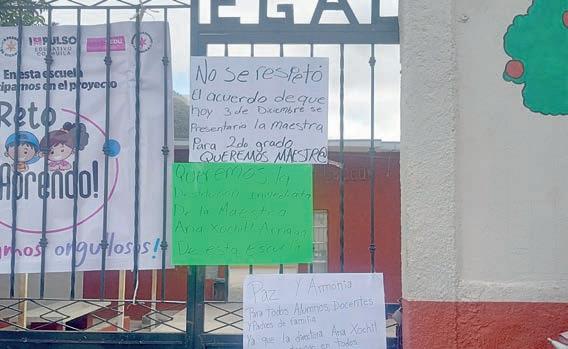 EGAL
IMPULSO
EDUCATIVO
COAHUILA
SEDU
En esta escuela
ticipamos en el proyecto
Reto
Aprendo!
mos orgullosos!
No se respetó
El acuerdo de que
hoy 3 de Diciembre se
Presentaria la maestra
Para 2do grado
QUEREMOS MAESTR@
Queremos la
Destitucion inmediata
De la Maestra
Ana Xochitl
De esta Escuela
Paz Y Armonia
Para Todos Alumnos, Docentes
y Padres de familia
Ya que la directora Ana Xochitl
en todos